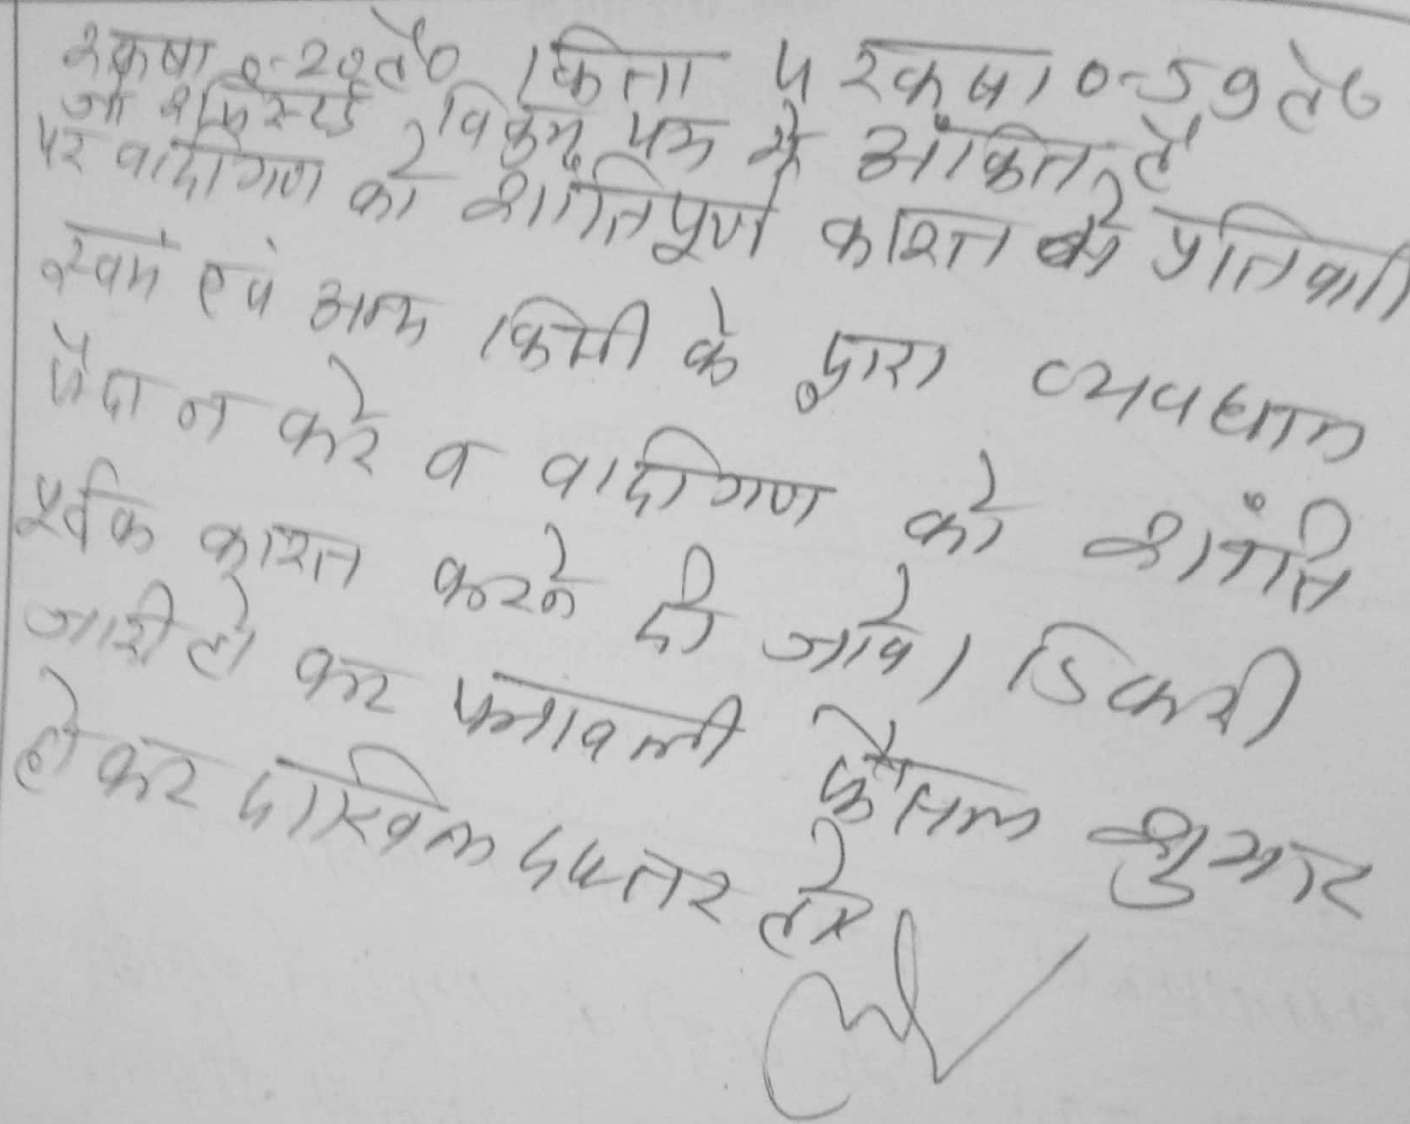 रकबा 0-20 है० किता 5 रकबा 0-59 है०
जो रजिस्टर्ड विक्रय पत्र में अंकित है
पर वादीगण को शांतिपूर्ण काश्त में प्रतिवादी
स्वयं एवं अन्य किसी के द्वारा व्यवधान
पैदा न करे व वादीगण को शांति
पूर्वक काश्त करने दी जावे। डिक्री
जारी हो कर पत्रावली फैसल शुमार
होकर दाखिल दफ्तर हो